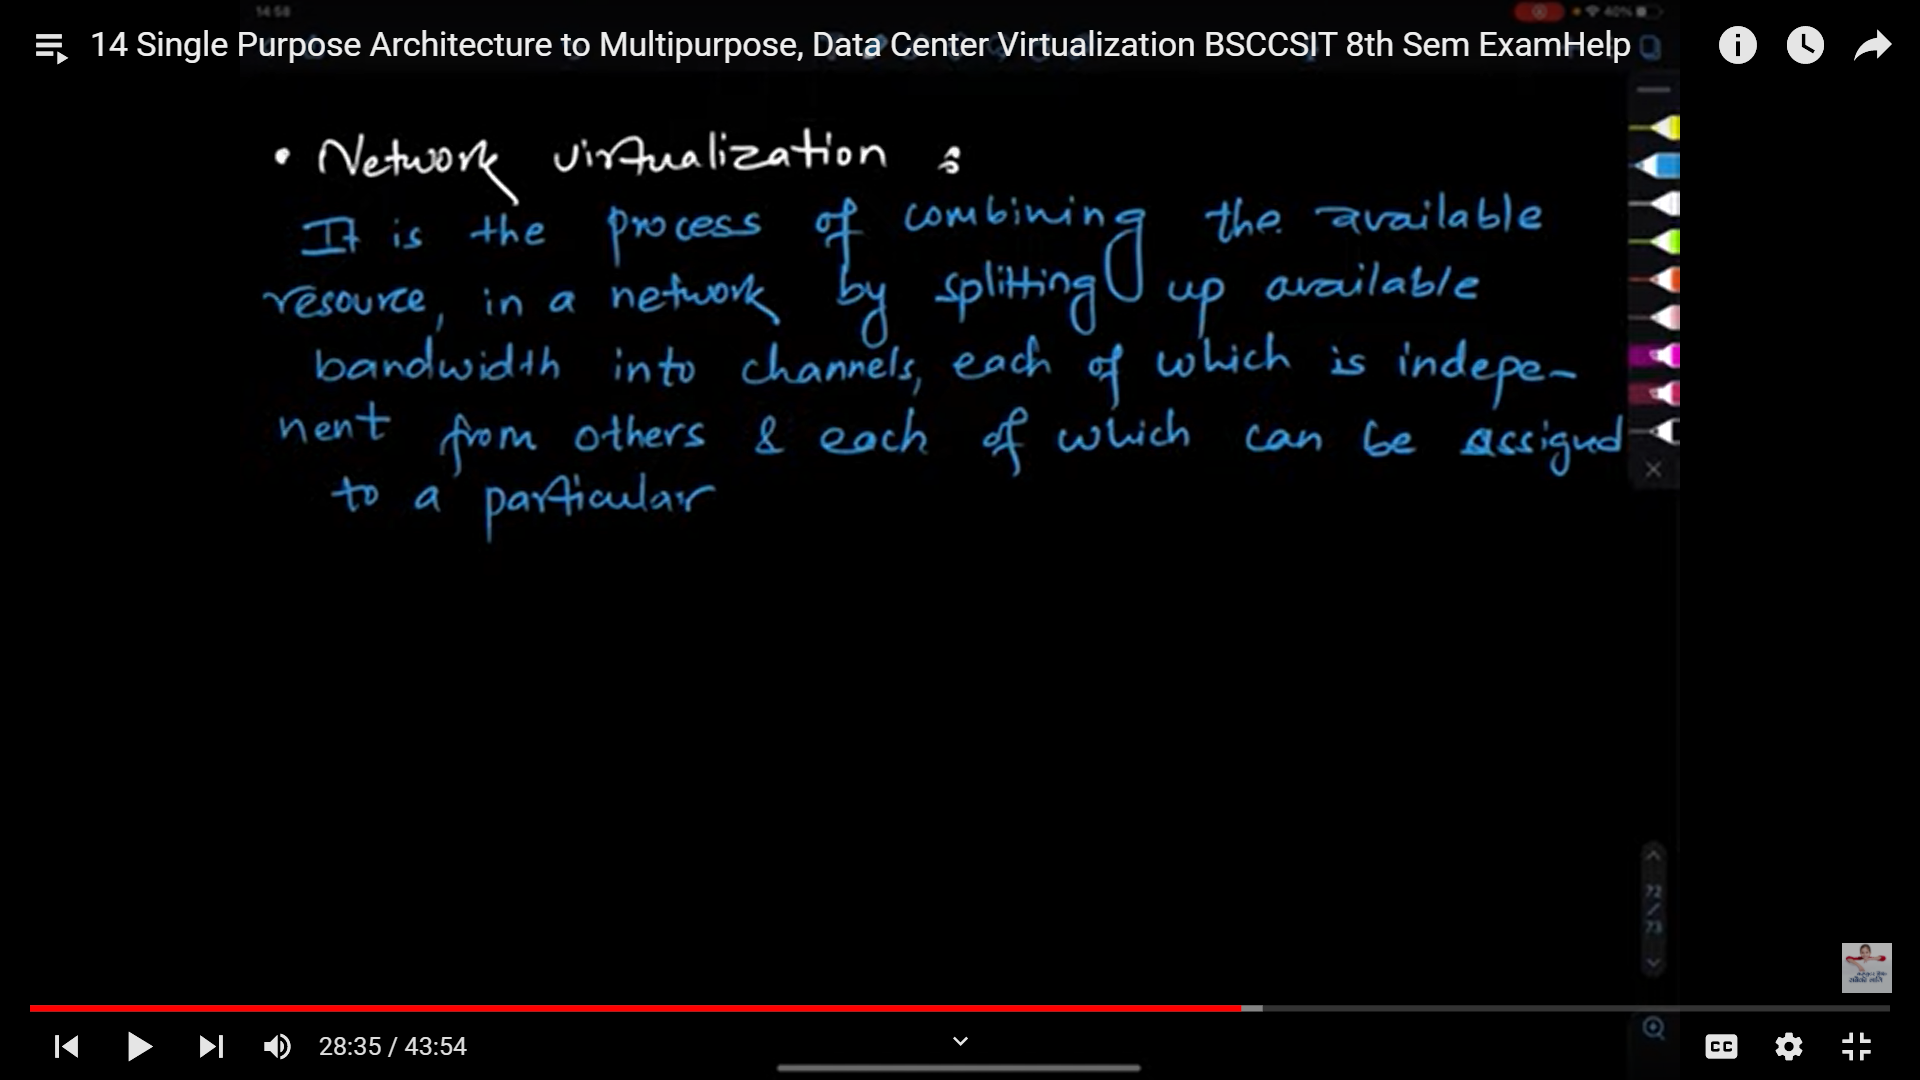 14:58
40%
14 Single Purpose Architecture to Multipurpose, Data Center Virtualization BSCCSIT 8th Sem ExamHelp
• Network virtualization :
It is the process of combining the available
resource, in a network by splitting up available
bandwidth into channels, each of which is indepe-
nent from others & each of which can be assigned
to a particular
72
/
73
28:35 / 43:54
CC